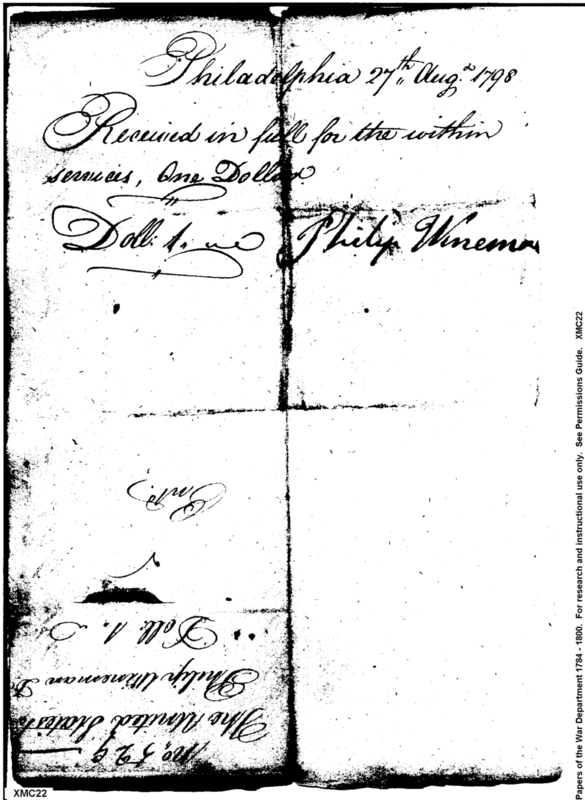 Philadelphia 27th Augt. 1798
Received in full for the within
services, One Dollar
Doll: 1. Philip Winema
Entd.
No. 529
The United States
Philip Wineman Dr
Doll: 1.
XMC22
Papers of the War Department 1784 - 1800. For research and instructional use only. See Permissions Guide. XMC22